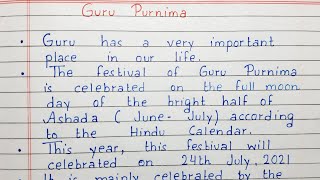 Guru Purnima
• Guru has a very important
place in our life.
• The festival of Guru Purnima
is celebrated on the full moon
day of the bright half of
Ashada ( June- July) according
to the Hindu Calendar.
• This year, this festival will
celebrated on 24th July, 2021
• It is mainly celebrated by the